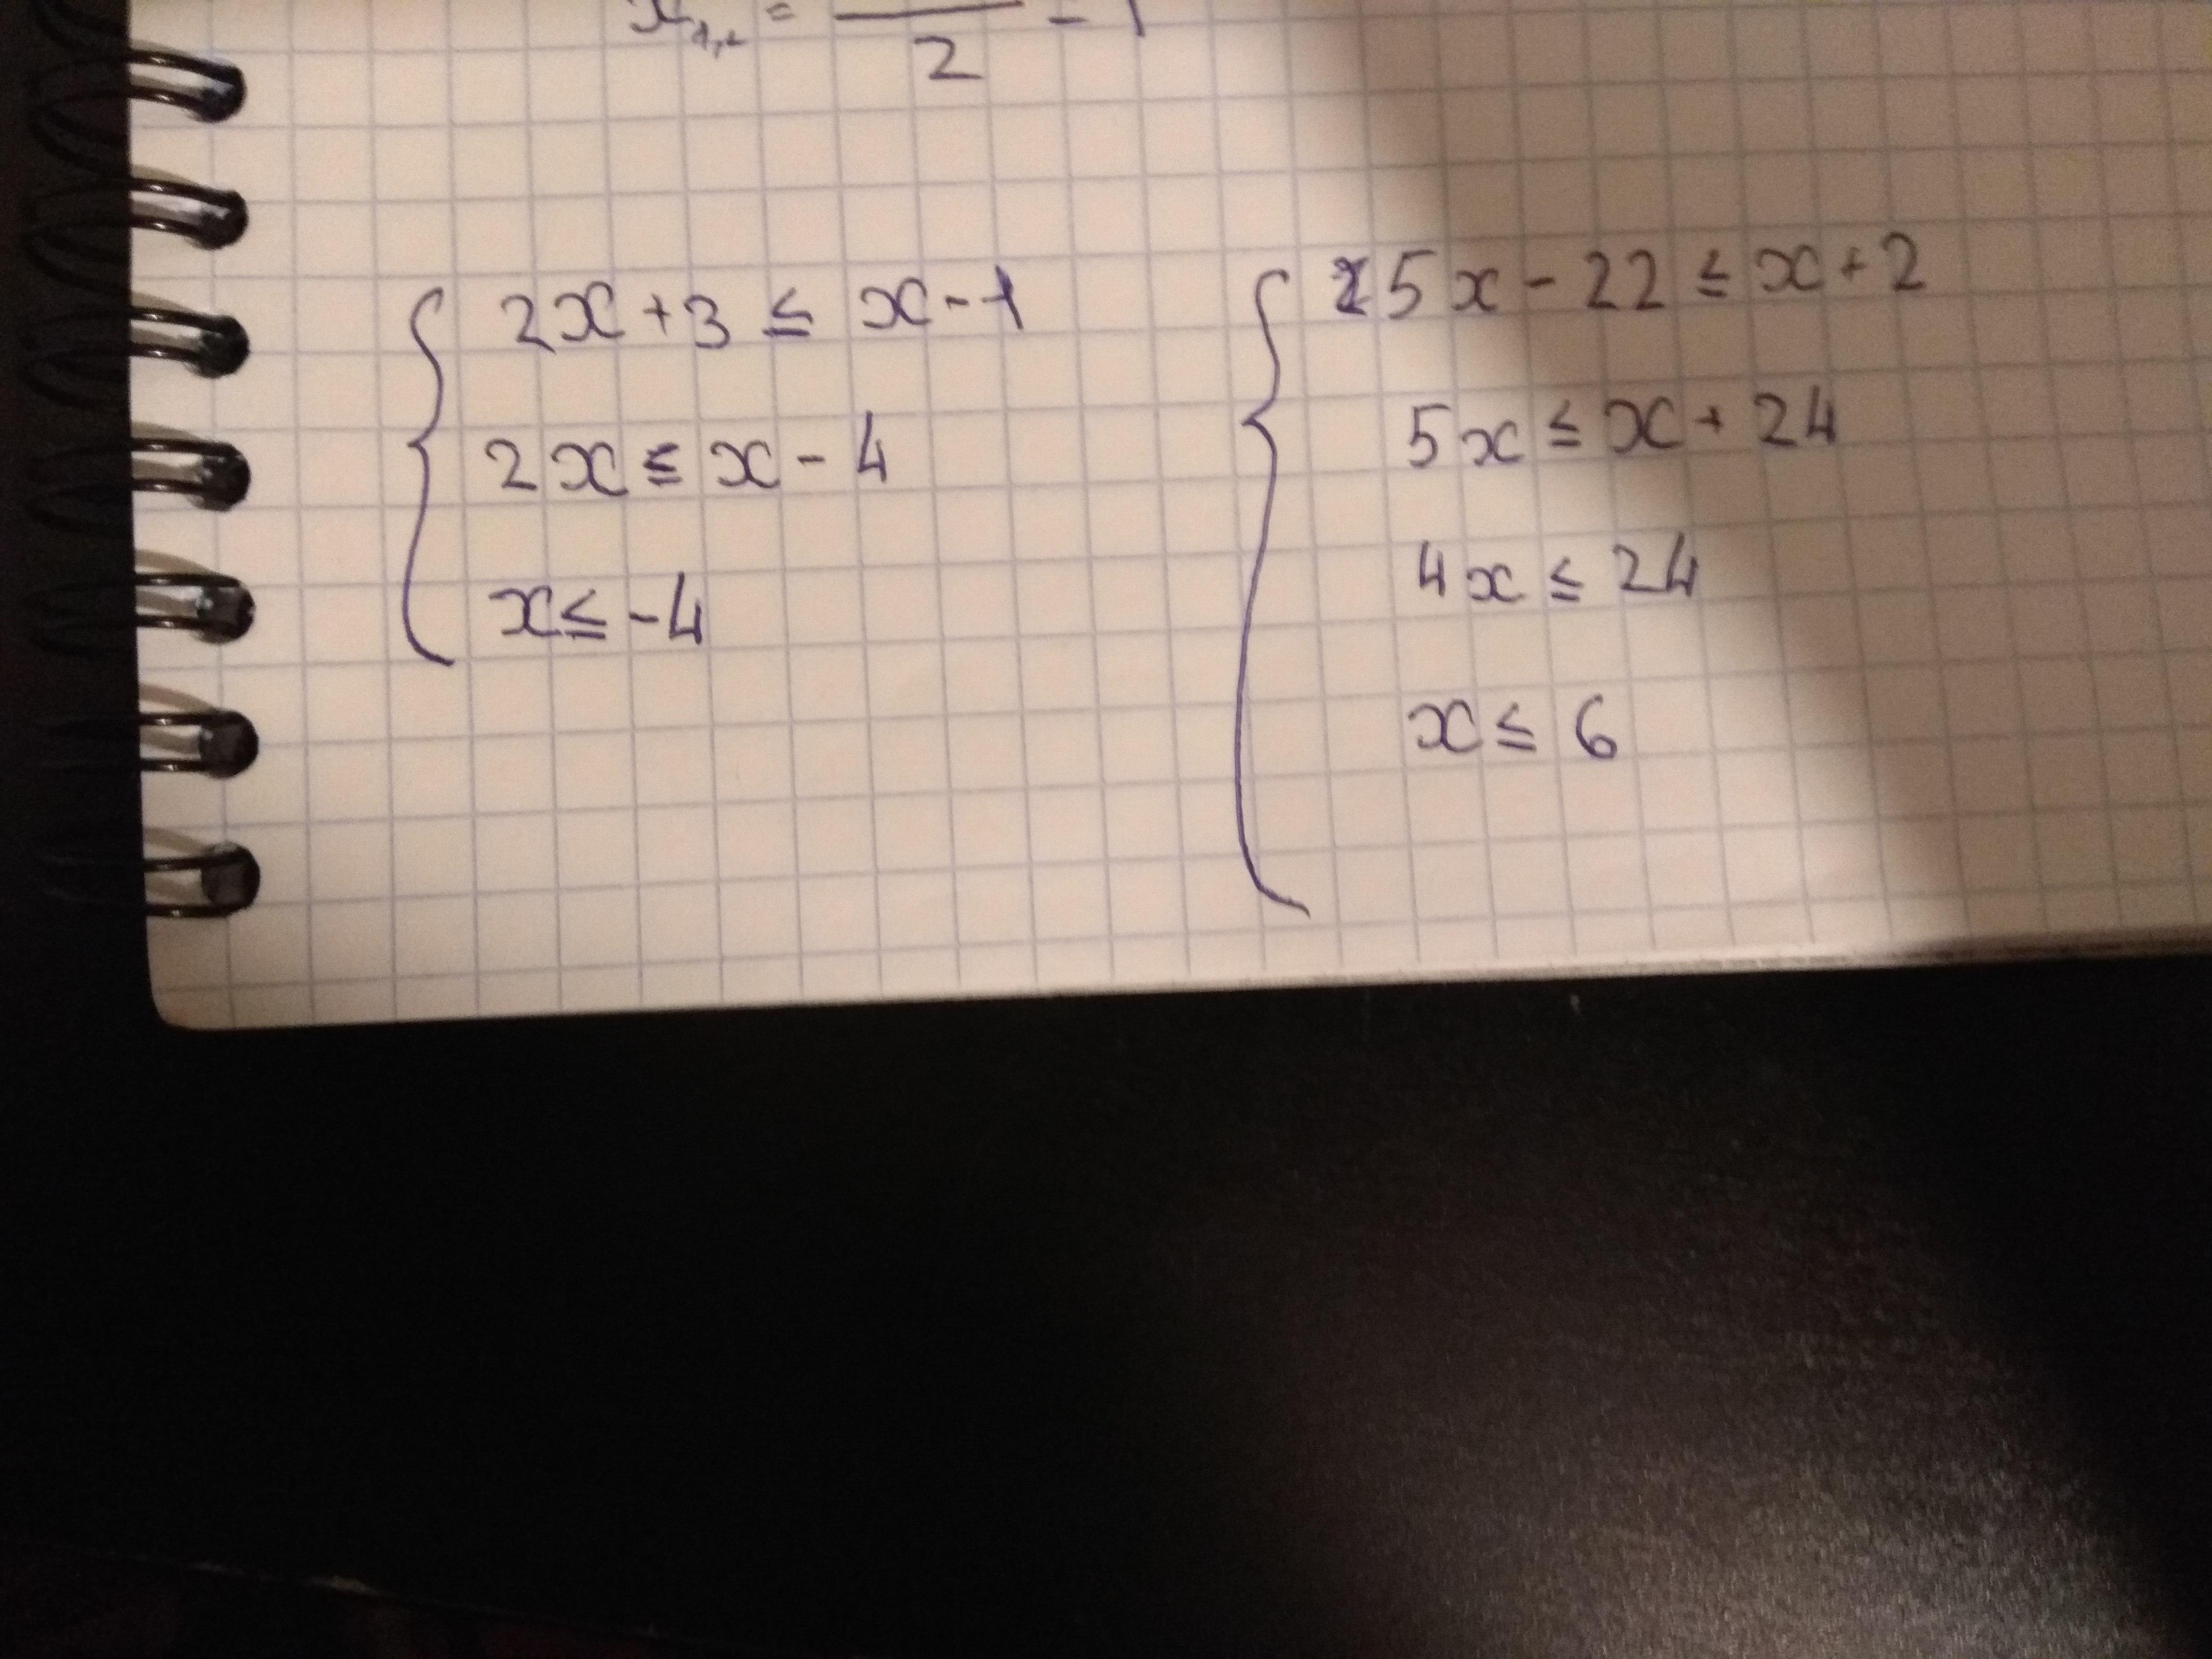 x₁,₂ = — / 2 = 1
2x + 3 ≤ x - 1
2x ≤ x - 4
x ≤ -4
5x - 22 ≤ x + 2
5x ≤ x + 24
4x ≤ 24
x ≤ 6